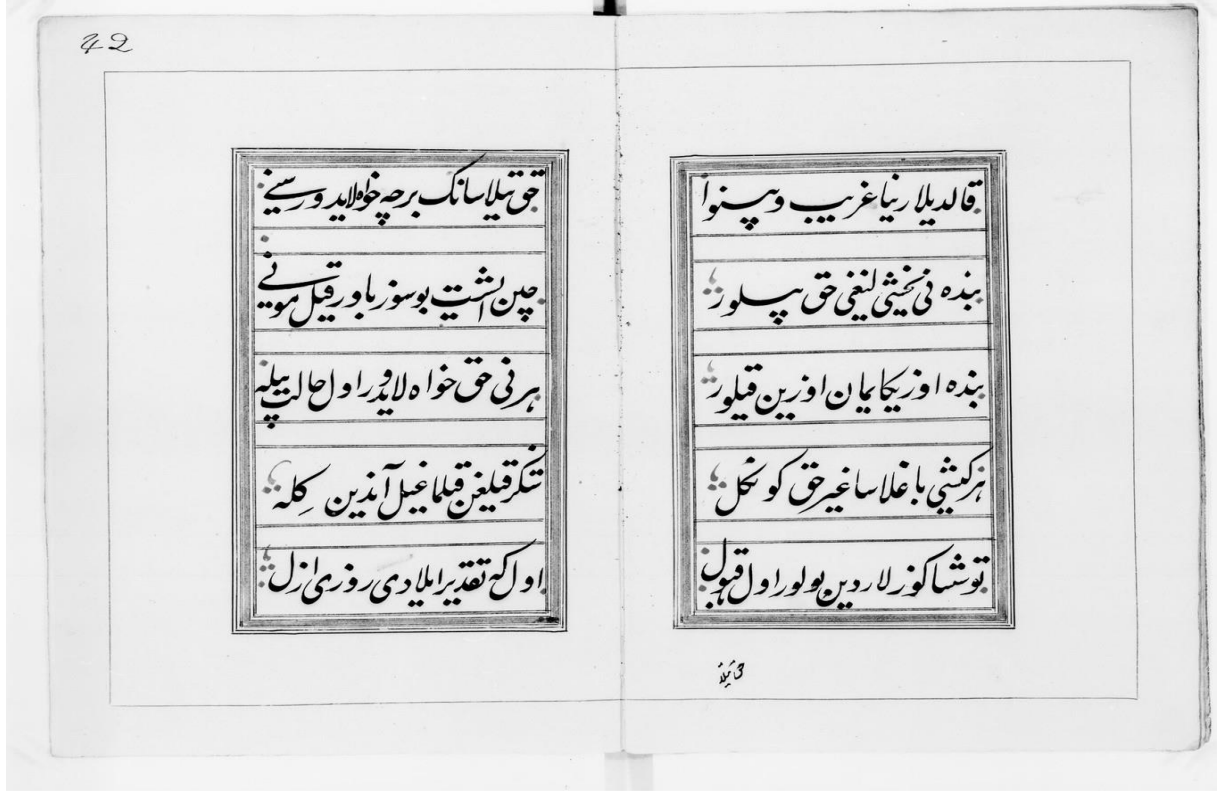 42
قالدیلار نیا غریب و بینوا
بنده نی یخشی لیغی حق بیلور
بنده اوزیکا یمان اوزین قیلور
هر کیشی باغلاسا غیر حق کونکل
توشسا کوزلاردین بولور اول
حق تیلاسانک هر چه خواهلایدور سینی
چین ایشیت بوسوز باور قیل مونی
هر نی حق خواه لایدور اول حالت بیله
شکر قیلغن قیلماغیل آندین کله
اول که تقدیر ایلادی روزی ازل